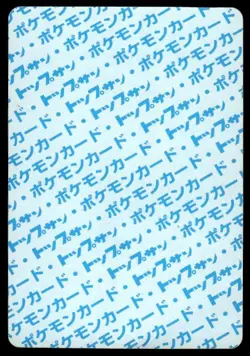 ポケモンカード・
トップサン・ポケモンカード・
ポケモンカード・トップサン・
トップサン・ポケモンカード・
ポケモンカード・トップサン・
トップサン・ポケモンカード・
ポケモンカード・トップサン・
トップサン・ポケモンカード・
ポケモンカード・トップサン・
トップサン・ポケモンカード・
ポケモンカード・トップサン・
トップサン・ポケモンカード